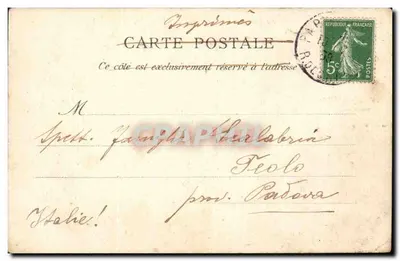 Imprimés
CARTE POSTALE
Ce côté est exclusivement réservé à l'adresse
REPUBLIQUE FRANÇAISE
5c
POSTES
PAR
M
Spett. Famiglia Scalabrin
Teolo
prov. Padova
Italie!